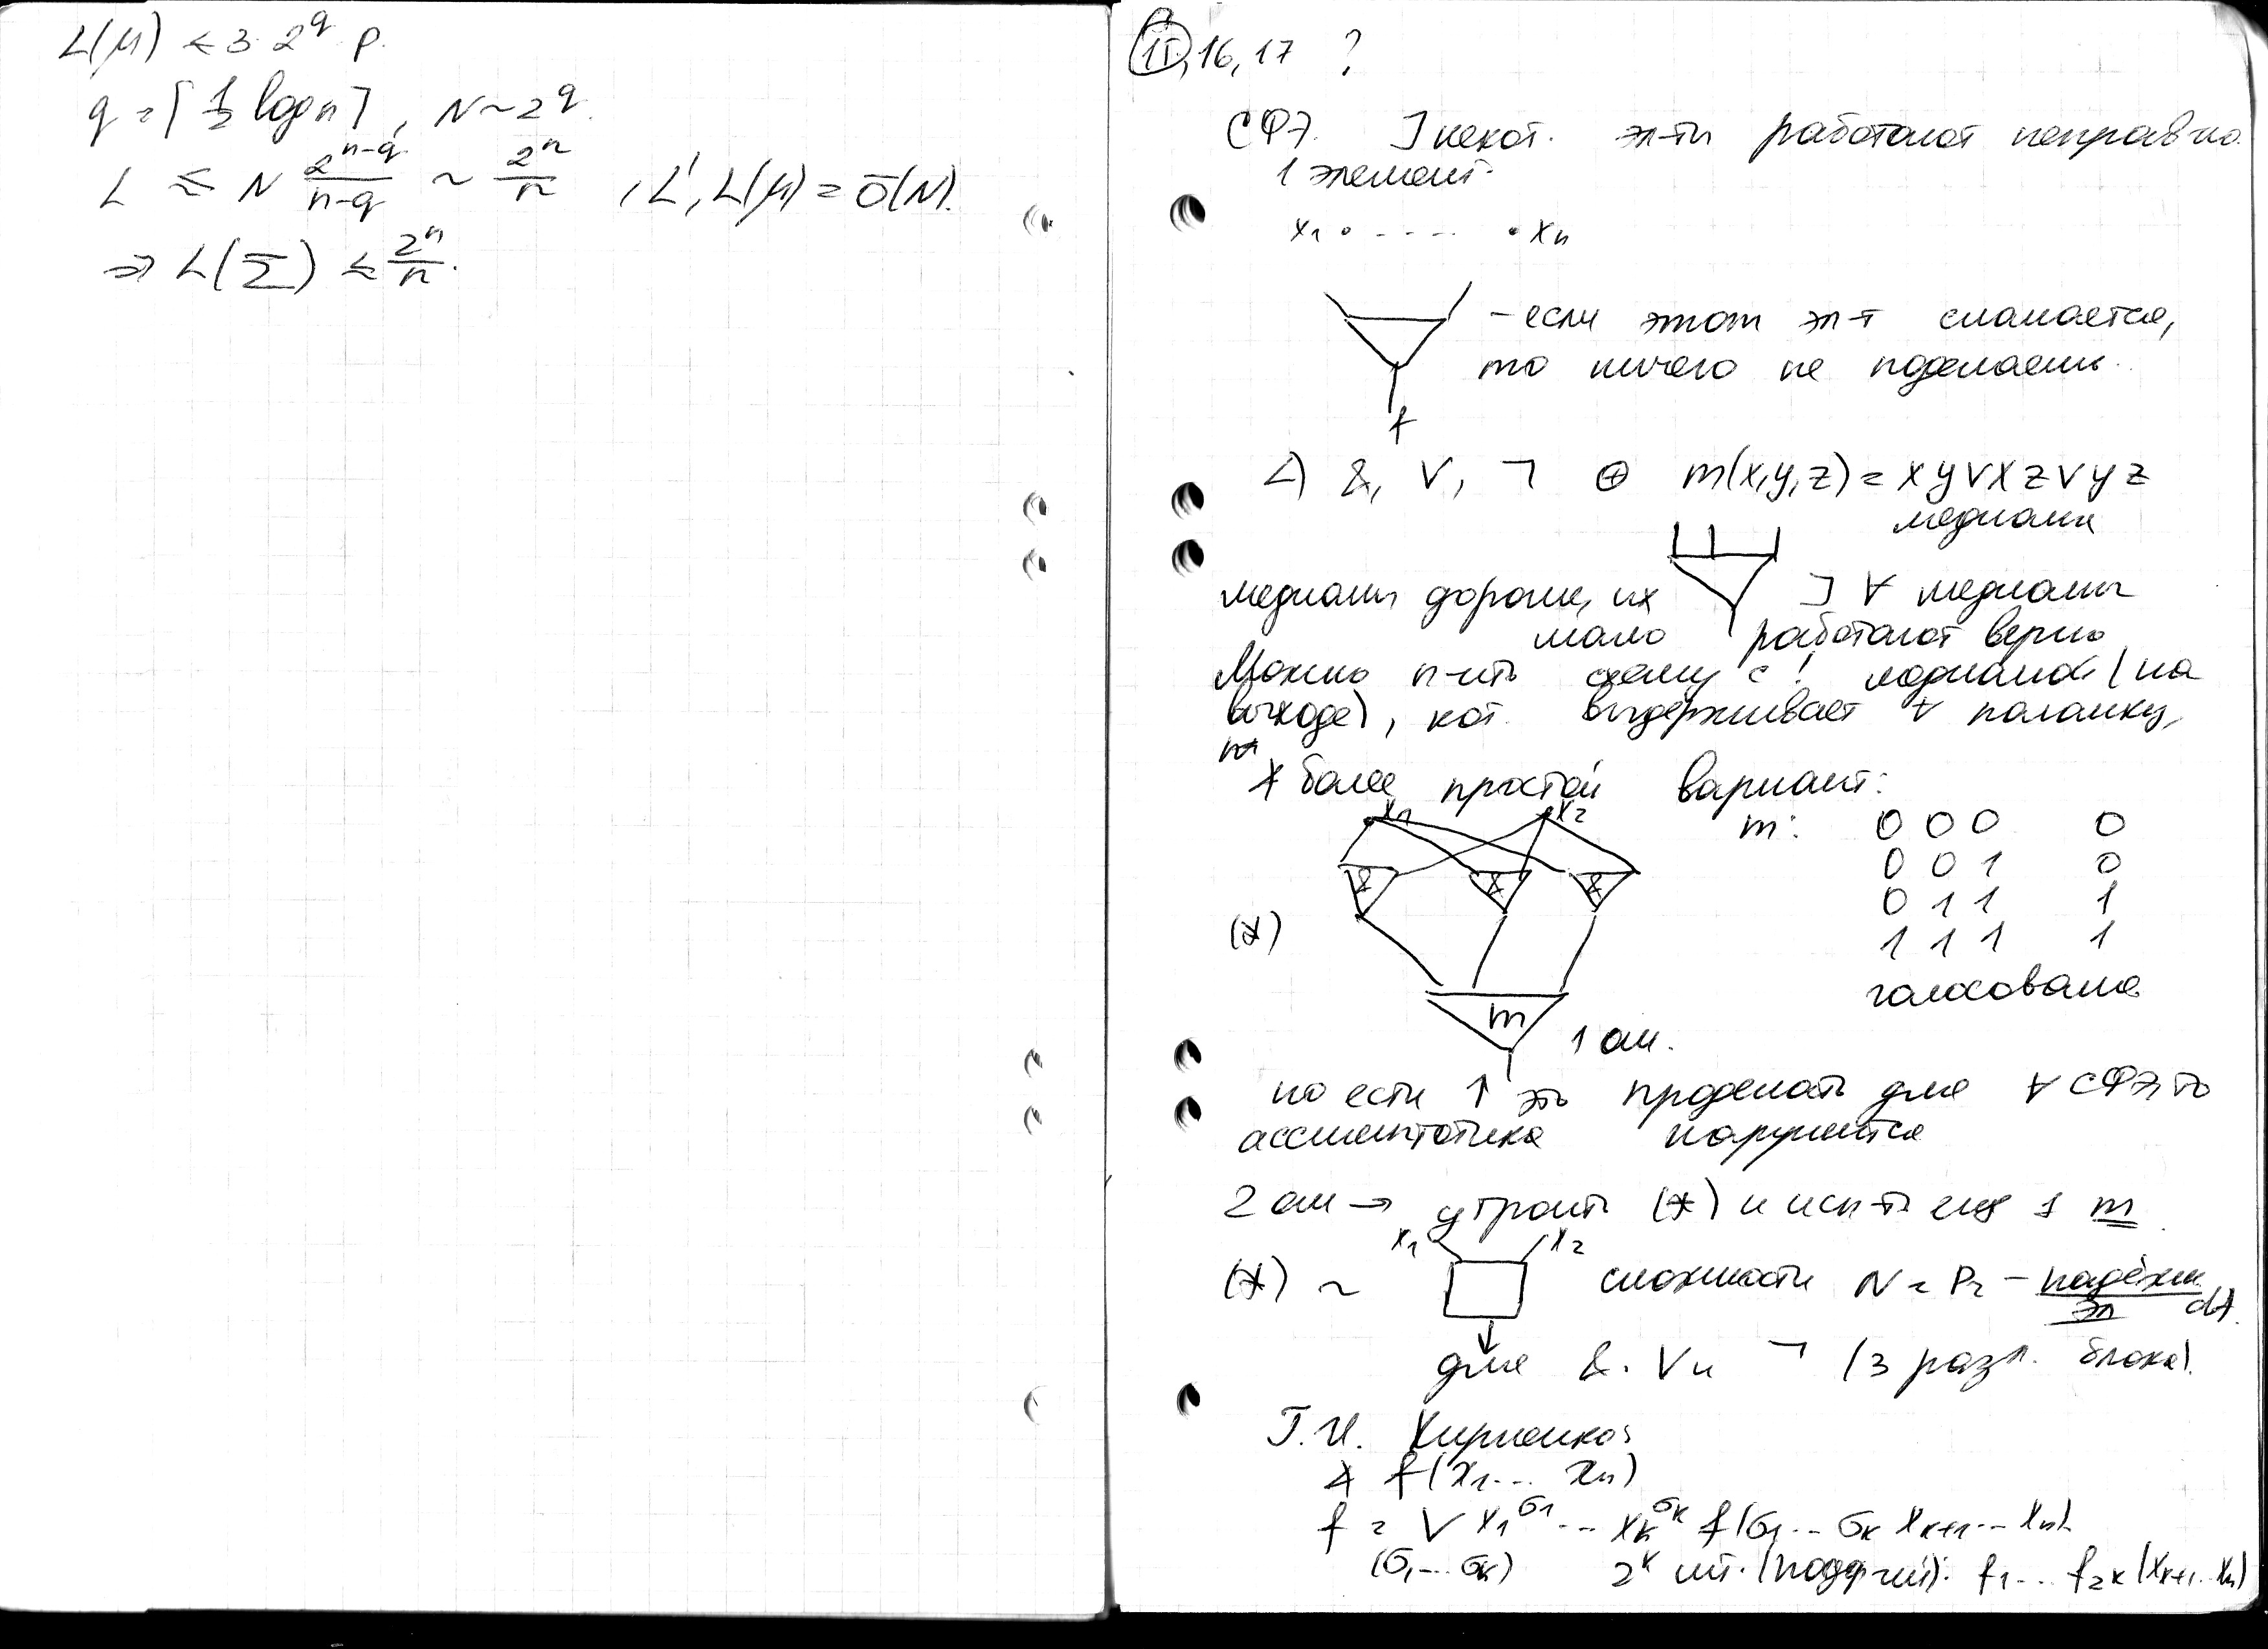 L(μ) ≤ 3·2^q·p.
q = ⌈½ log n⌉, N ~ 2^q.
L ≲ N 2^{n-q}/(n-q) ~ 2^n/n, L', L(μ) = ō(N).
⇒ L(Σ) ≲ 2^n/n.
15, 16, 17 ?
СФЭ. ] некот. эл-ты работают неправ-но.
1 элемент.
x₁ • - - - - • xₙ
– если этот эл-т сломается,
то ничего не поделаешь.
f
&, ∨, ¬ ⊕ m(x,y,z) = xy∨xz∨yz
медиана
медианы дороже, их
мало
] ∀ медианы
работают верно
Можно п-ить схему с ! медианой (на
выходе), кот. выдерживает ∀ поломку,
более простой вариант:
x₁ x₂
& & &
(*)
m
1 ош.
m: 0 0 0 0
0 0 1 0
0 1 1 1
1 1 1 1
голосование
но если ↑ это проделать для ∀ СФЭ, то
ассимптотика нарушится
2 ош → утроить (*) и исп-ть ещё 1 m
x₁ x₂
(*) ~ сложности N = P₂ – надёжн. эл
для & ∨ и ¬ (3 разл. блока).
Г.И. Кириенко:
f(x₁... xₙ)
f = ∨ x₁^{σ₁} ... x_k^{σ_k} f(σ₁... σ_k x_{k+1}... xₙ)
(σ₁... σ_k) 2^k шт. (подф-ций): f₁... f_{2^k}(x_{k+1}... xₙ)